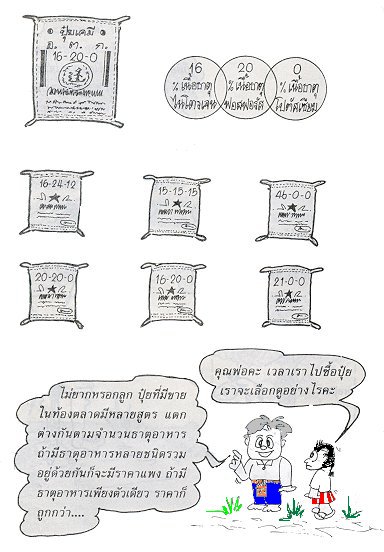 ปุ๋ยเคมี
16-20-0
16
20
0
% เนื้อธาตุ
% เนื้อธาตุ
% เนื้อธาตุ
ไนโตรเจน
ฟอสฟอรัส
โปตัสเซียม
16-24-12
15-15-15
46-0-0
20-20-0
16-20-0
21-0-0
คุณพ่อคะ เวลาเราไปซื้อปุ๋ย
เราจะเลือกดูอย่างไรคะ
ไม่ยากหรอกลูก ปุ๋ยที่มีขาย
ในท้องตลาดมีหลายสูตร แตก
ต่างกันตามจำนวนธาตุอาหาร
ถ้ามีธาตุอาหารหลายชนิดรวม
อยู่ด้วยกันก็จะมีราคาแพง ถ้ามี
ธาตุอาหารเพียงตัวเดียว ราคาก็
ถูกกว่า....